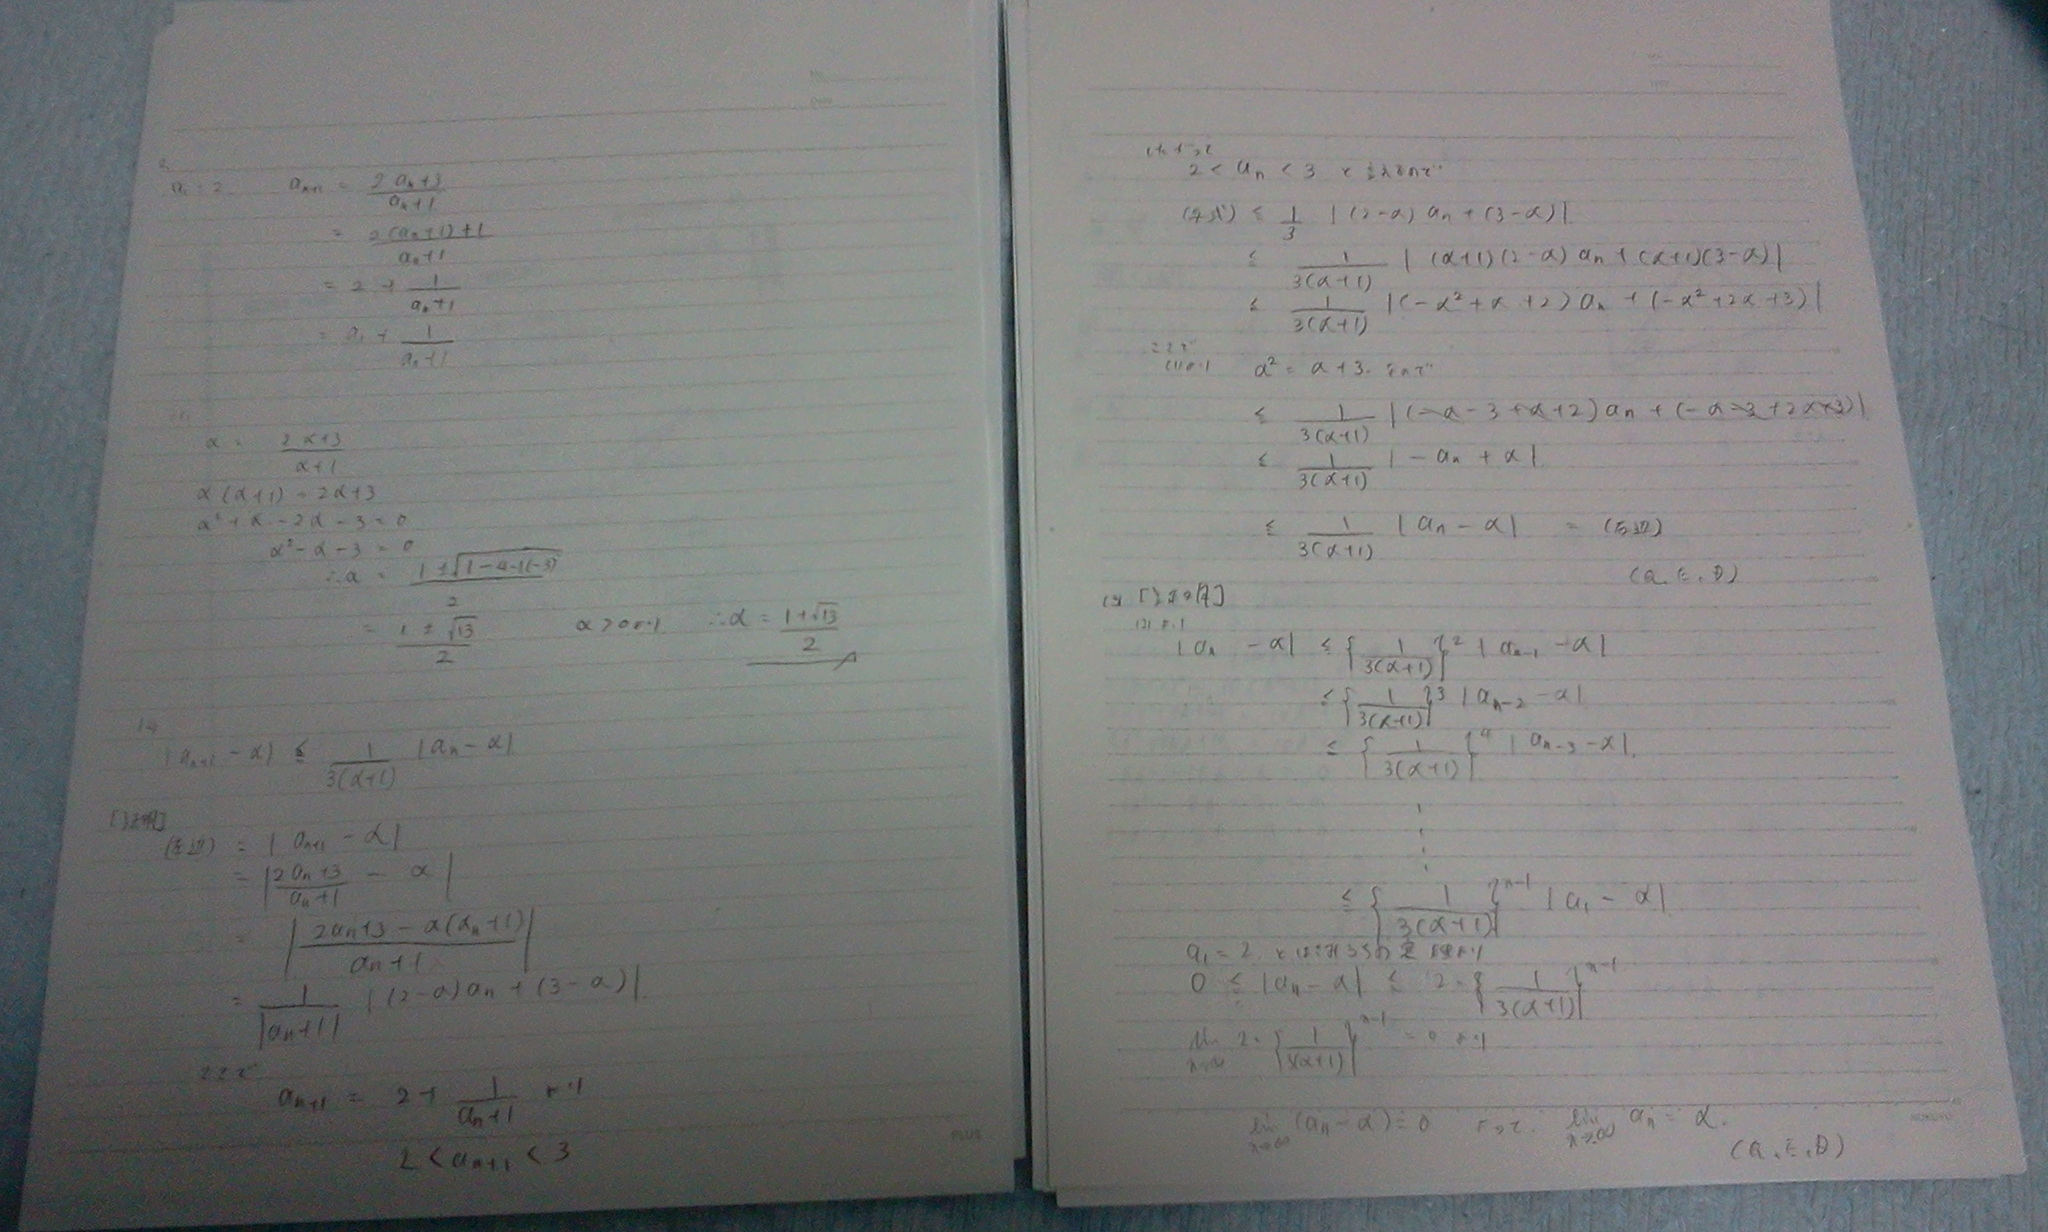 a₁ = 2 aₙ₊₁ = (2aₙ+3)/(aₙ+1)
= (2(aₙ+1)+1)/(aₙ+1)
= 2 + 1/(aₙ+1)
= a₁ + 1/(aₙ+1)
α = (2α+3)/(α+1)
α(α+1) = 2α+3
α²+α-2α-3 = 0
α²-α-3 = 0
∴α = (1±√(1-4·1(-3)))/2
= (1±√13)/2 α>0より ∴α = (1+√13)/2
|aₙ₊₁ - α| ≤ 1/(3(α+1)) |aₙ-α|
[証明]
(左辺) = |aₙ₊₁ - α|
= |(2aₙ+3)/(aₙ+1) - α|
= |(2aₙ+3-α(aₙ+1))/(aₙ+1)|
= 1/|aₙ+1| |(2-α)aₙ+(3-α)|
ここで
aₙ₊₁ = 2+ 1/(aₙ+1) より
2<aₙ₊₁<3
したがって
2<aₙ<3
(与式) ≤ 1/3 |(2-α)aₙ+(3-α)|
≤ 1/(3(α+1)) |(α+1)(2-α)aₙ+(α+1)(3-α)|
≤ 1/(3(α+1)) |(-α²+α+2)aₙ+(-α²+2α+3)|
ここで
(1)より α² = α+3.
≤ 1/(3(α+1)) |(-α-3+α+2)aₙ+(-α-3+2α+3)|
≤ 1/(3(α+1)) |-aₙ+α|
≤ 1/(3(α+1)) |aₙ-α| = (右辺)
(Q.E.D)
[証明]
(2)より
|aₙ-α| ≤ {1/(3(α+1))}² |aₙ₋₁-α|
≤ {1/(3(α+1))}³ |aₙ₋₂-α|
≤ {1/(3(α+1))}⁴ |aₙ₋₃-α|.
≤ {1/(3(α+1))}ⁿ⁻¹ |a₁-α|
a₁ = 2 とはさみうちの定理より
0 ≤ |aₙ-α| ≤ 2·{1/(3(α+1))}ⁿ⁻¹
lim n→∞ 2·{1/(3(α+1))}ⁿ⁻¹ = 0 より
lim n→∞ (aₙ-α) = 0 よって. lim n→∞ aₙ = α.
(Q.E.D)
PLUS
KOKUYO